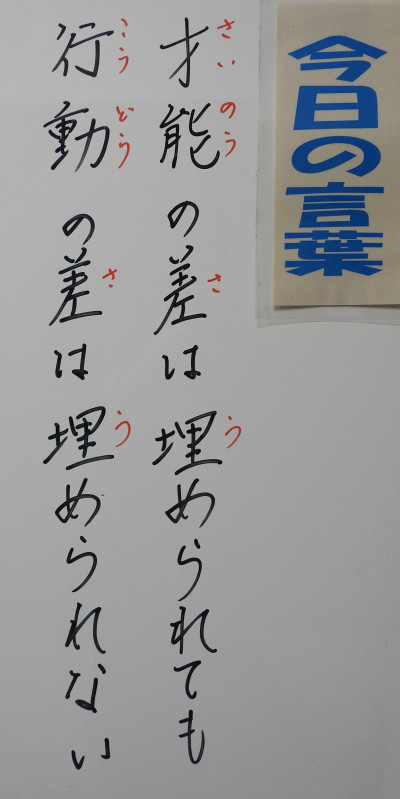 今日の言葉
才能の差は埋められても
さいのう
さ
う
行動の差は埋められない
こうどう
さ
う